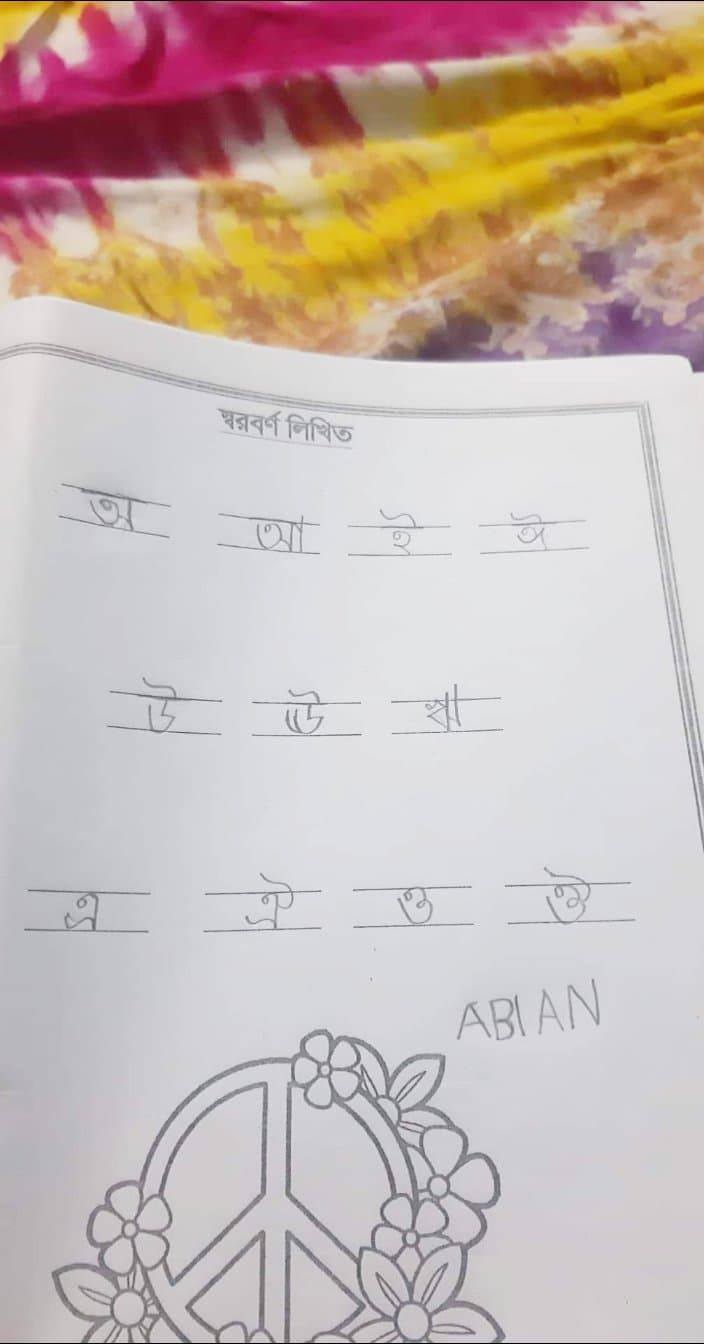 স্বরবর্ণ লিখিত
অ আ ই ঈ
উ ঊ ঋ
এ ঐ ও ঔ
ABIAN